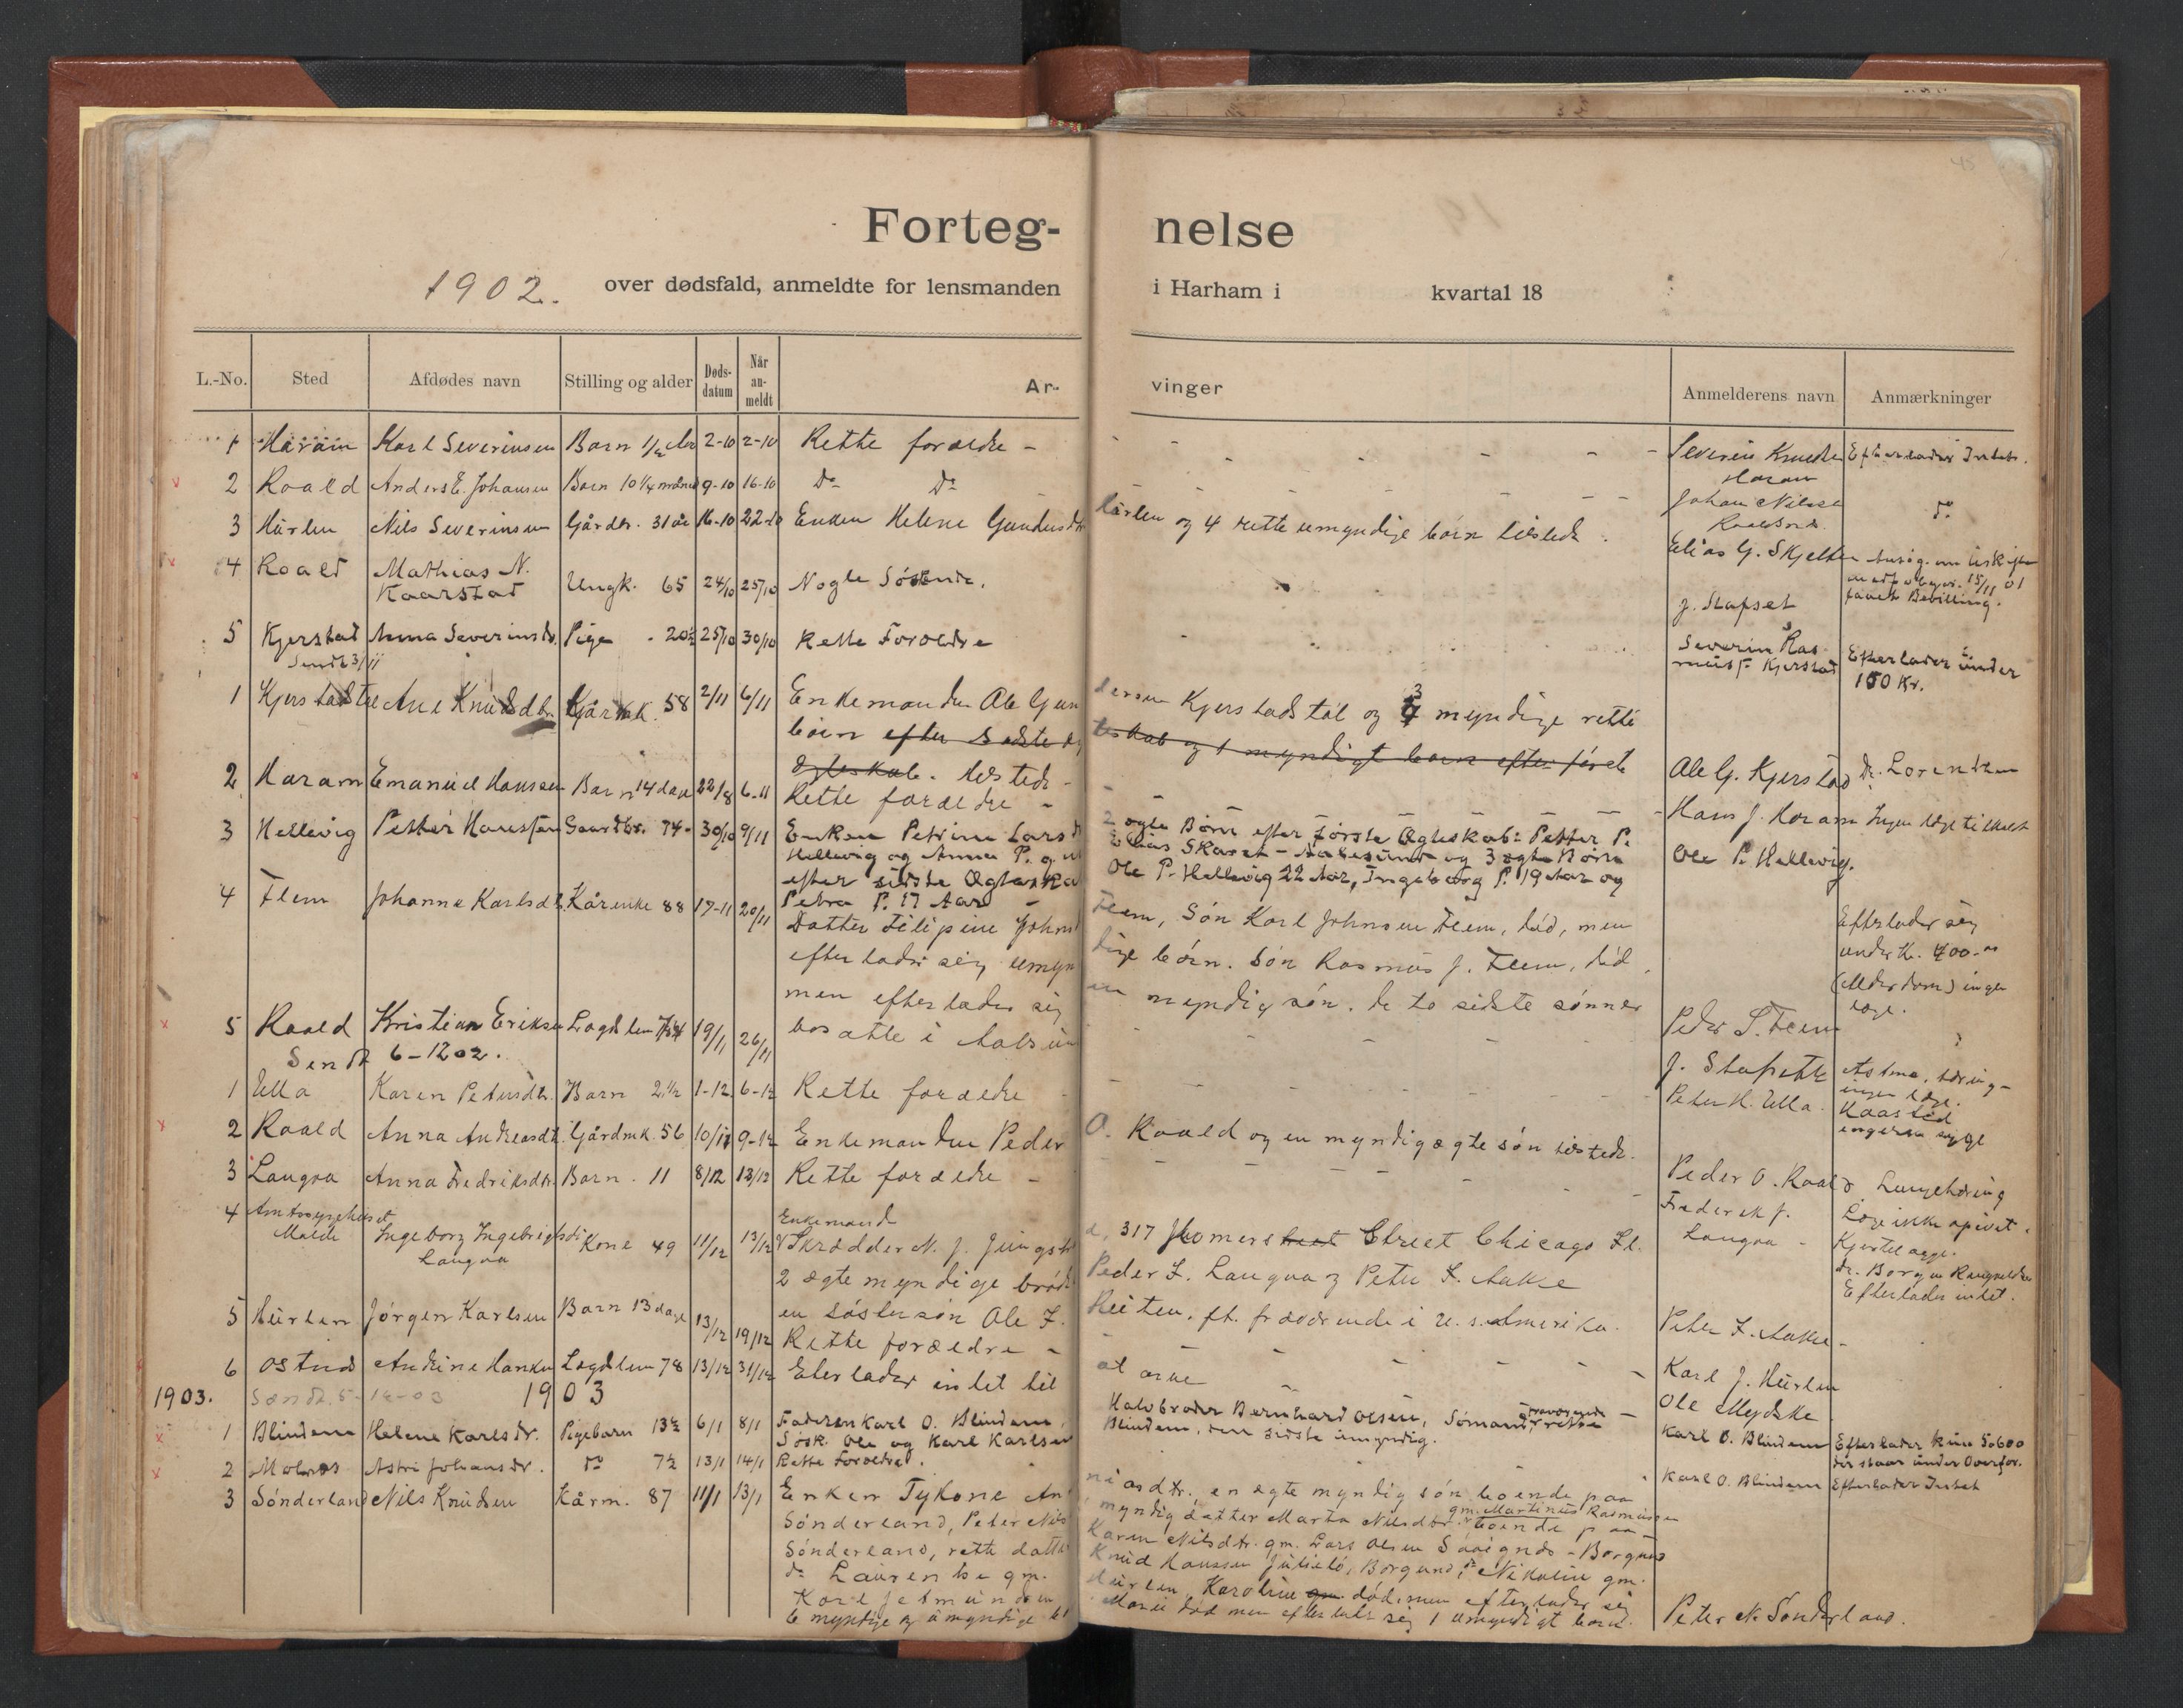 Forteg- nelse
1902. over dødsfald, anmeldte for lensmanden i Harham i kvartal 18
L.-No. Sted Afdødes navn Stilling og alder Døds-datum Når an-meldt Ar- vinger Anmelderens navn Anmærkninger
1 Haram Karl Severinsen Barn 1/2 2-10 2-10 Rette forældre - Severin Knudsen Efterlader Intet.
Haram
2 Roald Anders E. Johansen Barn 10 1/4 måned 9-10 16-10 Do Do Johan Nilsen do
Roaldsnes
3 Hurlen Nils Severinsen Gårdbr. 31 år 16-10 22-10 Enken Helene Gundersdtr Hurlen og 4 rette umyndige børn tilstede. Elias G. Skjelten
15/11 01
Bevilling.
4 Roald Mathias N. Kaarstad Ungk. 65 24/10 25/10 Nogle Søskende. J. Stafset
5 Kjerstad Anna Severinsdr. Pige - 20 1/2 25/10 30/10 Rette Forældre Severin Ras- Efterlader under
Sendt 3/11 musF. Kjerstad 100 Kr.
1 Kjerstadtøl Ane Knudsdtr. Gårmk. 58 2/11 6/11 Enkemanden Ole Gundersen Kjerstadstøl og 3 myndige rette
børn efter sidste ægteskab og 1 myndigt barn efter første
ægteskab. tilstede - Ole G. Kjerstad Dr. Lorentzen
2 Haram Emanuel Hansen Barn 14 dage 22/8 6-11 Rette forældre - Hans J. Haram Ingen læge tilkaldt
3 Hellevig Petter Hansen Gaardbr. 74- 30/10 9/11 Enken Petrine Larsd 2 ægte Børn efter første Ægteskab: Petter P. Ole P. Hellevig.
Hellevig og Anna P. g. m Elias Skaret - Aalesund og 3 ægte Børn
efter sidste Ægteska Ole P. Hellevig 22 Aar, Ingeborg P. 19 Aar og
Petra P. 17 Aar -
4 Flem Johanne Karlsdt. Kårenke 88 17-11 20/11 Datter Filipine Johnsd Flem, Søn Karl Johnsen Flem, død, men Efterlader sig
efterlader sig umyndige børn. Søn Rasmus J. Flem, død, under Kr. 400.-
men efterlader sig en myndig søn. De to sidste sønner (Alderdom) ingen
bosatte i Aalesun Peder S. Flem læge.
5 Roald Kristian Eriksen Lægdslem 19/11 26/11 J. Stafseth
Sendt 6-1202.
1 Ulla Karen Petersdtr. Barn 2 1/2 1-12 6-12 Rette forældre Peter K. Ulla. Astma, tæring -
ingen læge.
2 Roald Anna Andreasdt. Gårdmk. 56 10/11 9-12 Enkemanden Peder O. Roald og en myndig ægte søn tilstede. Peder O. Roald
3 Langva Anna Fredriksdtr. Barn. 11 8/12 13/12 Rette forældre - Frederik J. Langva -
4 Amtssygehuset Molde Ingeborg Ingebrigtsdt Langva Kone 49 11/12 13/12 Enkemand
Skrædder N. J. 317 Homer Street Chicago Il.
2 ægte myndige brødr Peder I. Langva og Peter I. Aakre
en søstersøn Ole I. Ruiten, ft. fraværende i U. S. Amerika. Peter I. Aakre - Efterlader intet.
5 Hurlen Jørgen Karlsen Barn 13 dage 13/12 19/12 Rette forældre - Karl J. Hurlen
6 Ostnes Andrine Hansen Lægdslem 78 13/12 31/12 Eterlader intet til at arve Ole Mydske
1903. Sendt. 5-12-03 1903
1 Blindem Helene Karlsdr. Pigebarn 13 1/2 6/1 8/1 Faderen Karl O. Blindem, Halvbroder Bernhard Olsen, Sømand, fraværende, rette Karl O. Blindem Efterlader 5600
Søsk. Ole og Karl Karlsen Blindem, den sidste umyndig. der staar under Overfor.
2 Molnes Astri Johansdr. Do 7 1/2 13/1 14/1 Rette Forældre. Karl O. Blindem Efterlader Intet
3 Sønderland Nils Knudsen Kårm. 87 11/1 13/1 Enken Tykone An niasdtr. en ægte myndig søn boende paa
Sønderland, Peter Nils myndig datter Marta Nilsdtr. gm. Martinus Rasmussen boende paa -
Sønderland, rette datte Karen Nilsdtr. gm. Lars Olsen - Borgund
do Laurense gm. Knud Hanssen Borgund, do Nikoline gm.
Karl Jetmundsen Hurlen, Karoline gm død, men efterlader sig
6 myndige og umyndige Marie død men efterlader sig 1 umyndigt barn. Peter N. Sønderland.